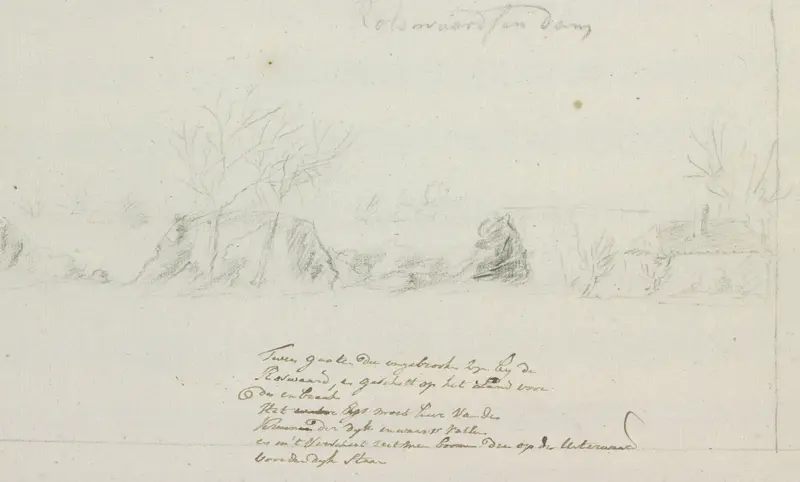 Roswaard en dam
Twee gaaten die ingebrooken zyn by de
Roswaard, en geschetst op het Land voor
de inbraak
Het licht moet hier van de
der dyk inwaarts vallen
en in't Verschiet ziet men boomen die op de Uiterwaard
voor den dyk Staan